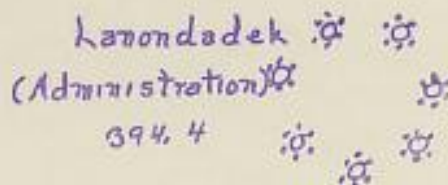 Lanondadek
(Administration)
394.4